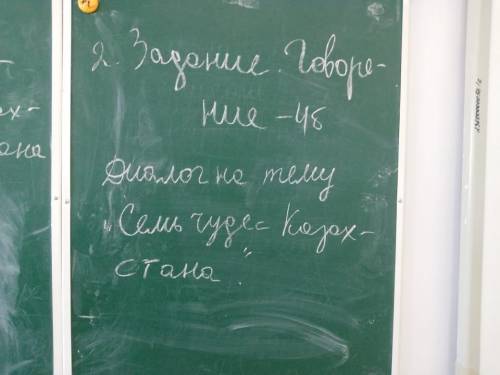 ах-
ана
2. Задание. Говоре-
ние - 4б
Диалог на тему
"Семь чудес Казах-
стана".